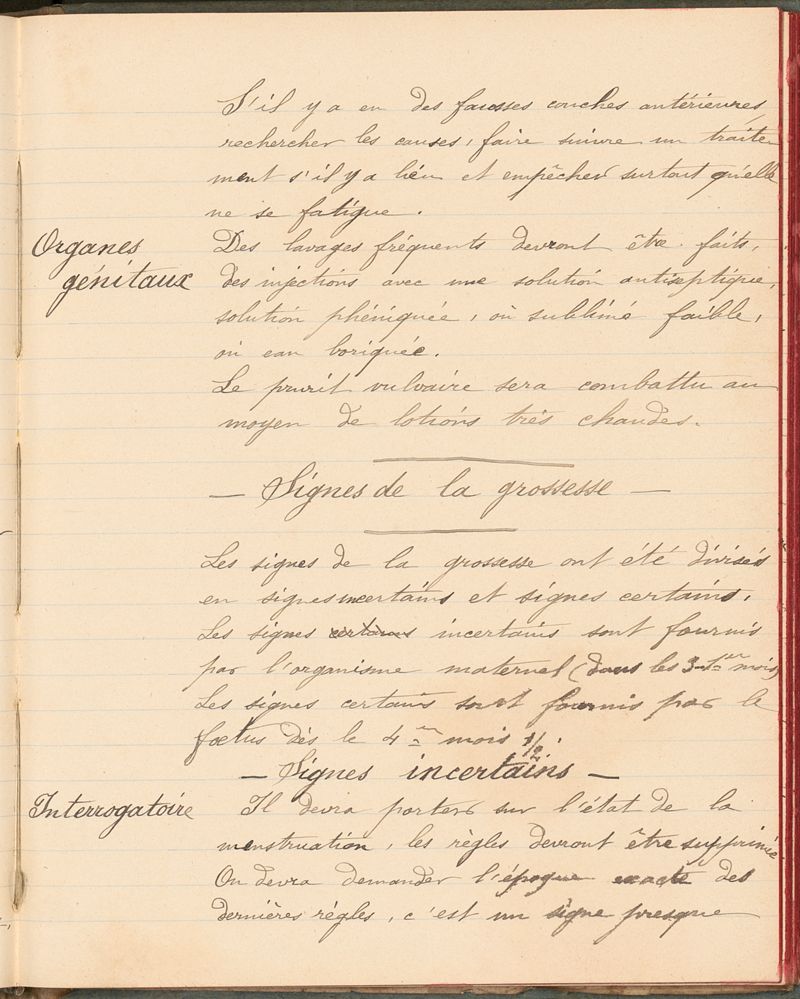 S'il y a eu des fausses couches antérieures,
rechercher les causes, faire suivre un traite
ment s'il y a lieu et empêcher surtout qu'elle
ne se fatigue.
Organes
génitaux
Des lavages fréquents devront être faits,
des injections avec une solution antiseptique,
solution phéniquée, ou sublimé faible,
ou eau boriquée.
Le prurit vulvaire sera combattu au
moyen de lotions très chaudes.
— Signes de la grossesse —
Les signes de la grossesse ont été divisés
en signes incertains et signes certains.
Les signes certains incertains sont fournis
par l'organisme maternel (dans les 3 1ers mois)
Les signes certains sont fournis par le
foetus dès le 4em mois 1/2.
— Signes incertains —
Interrogatoire
Il devra porter sur l'état de la
menstruation, les règles devront être supprimée
On devra demander l'époque exacte des
dernières règles, c'est un signe presque